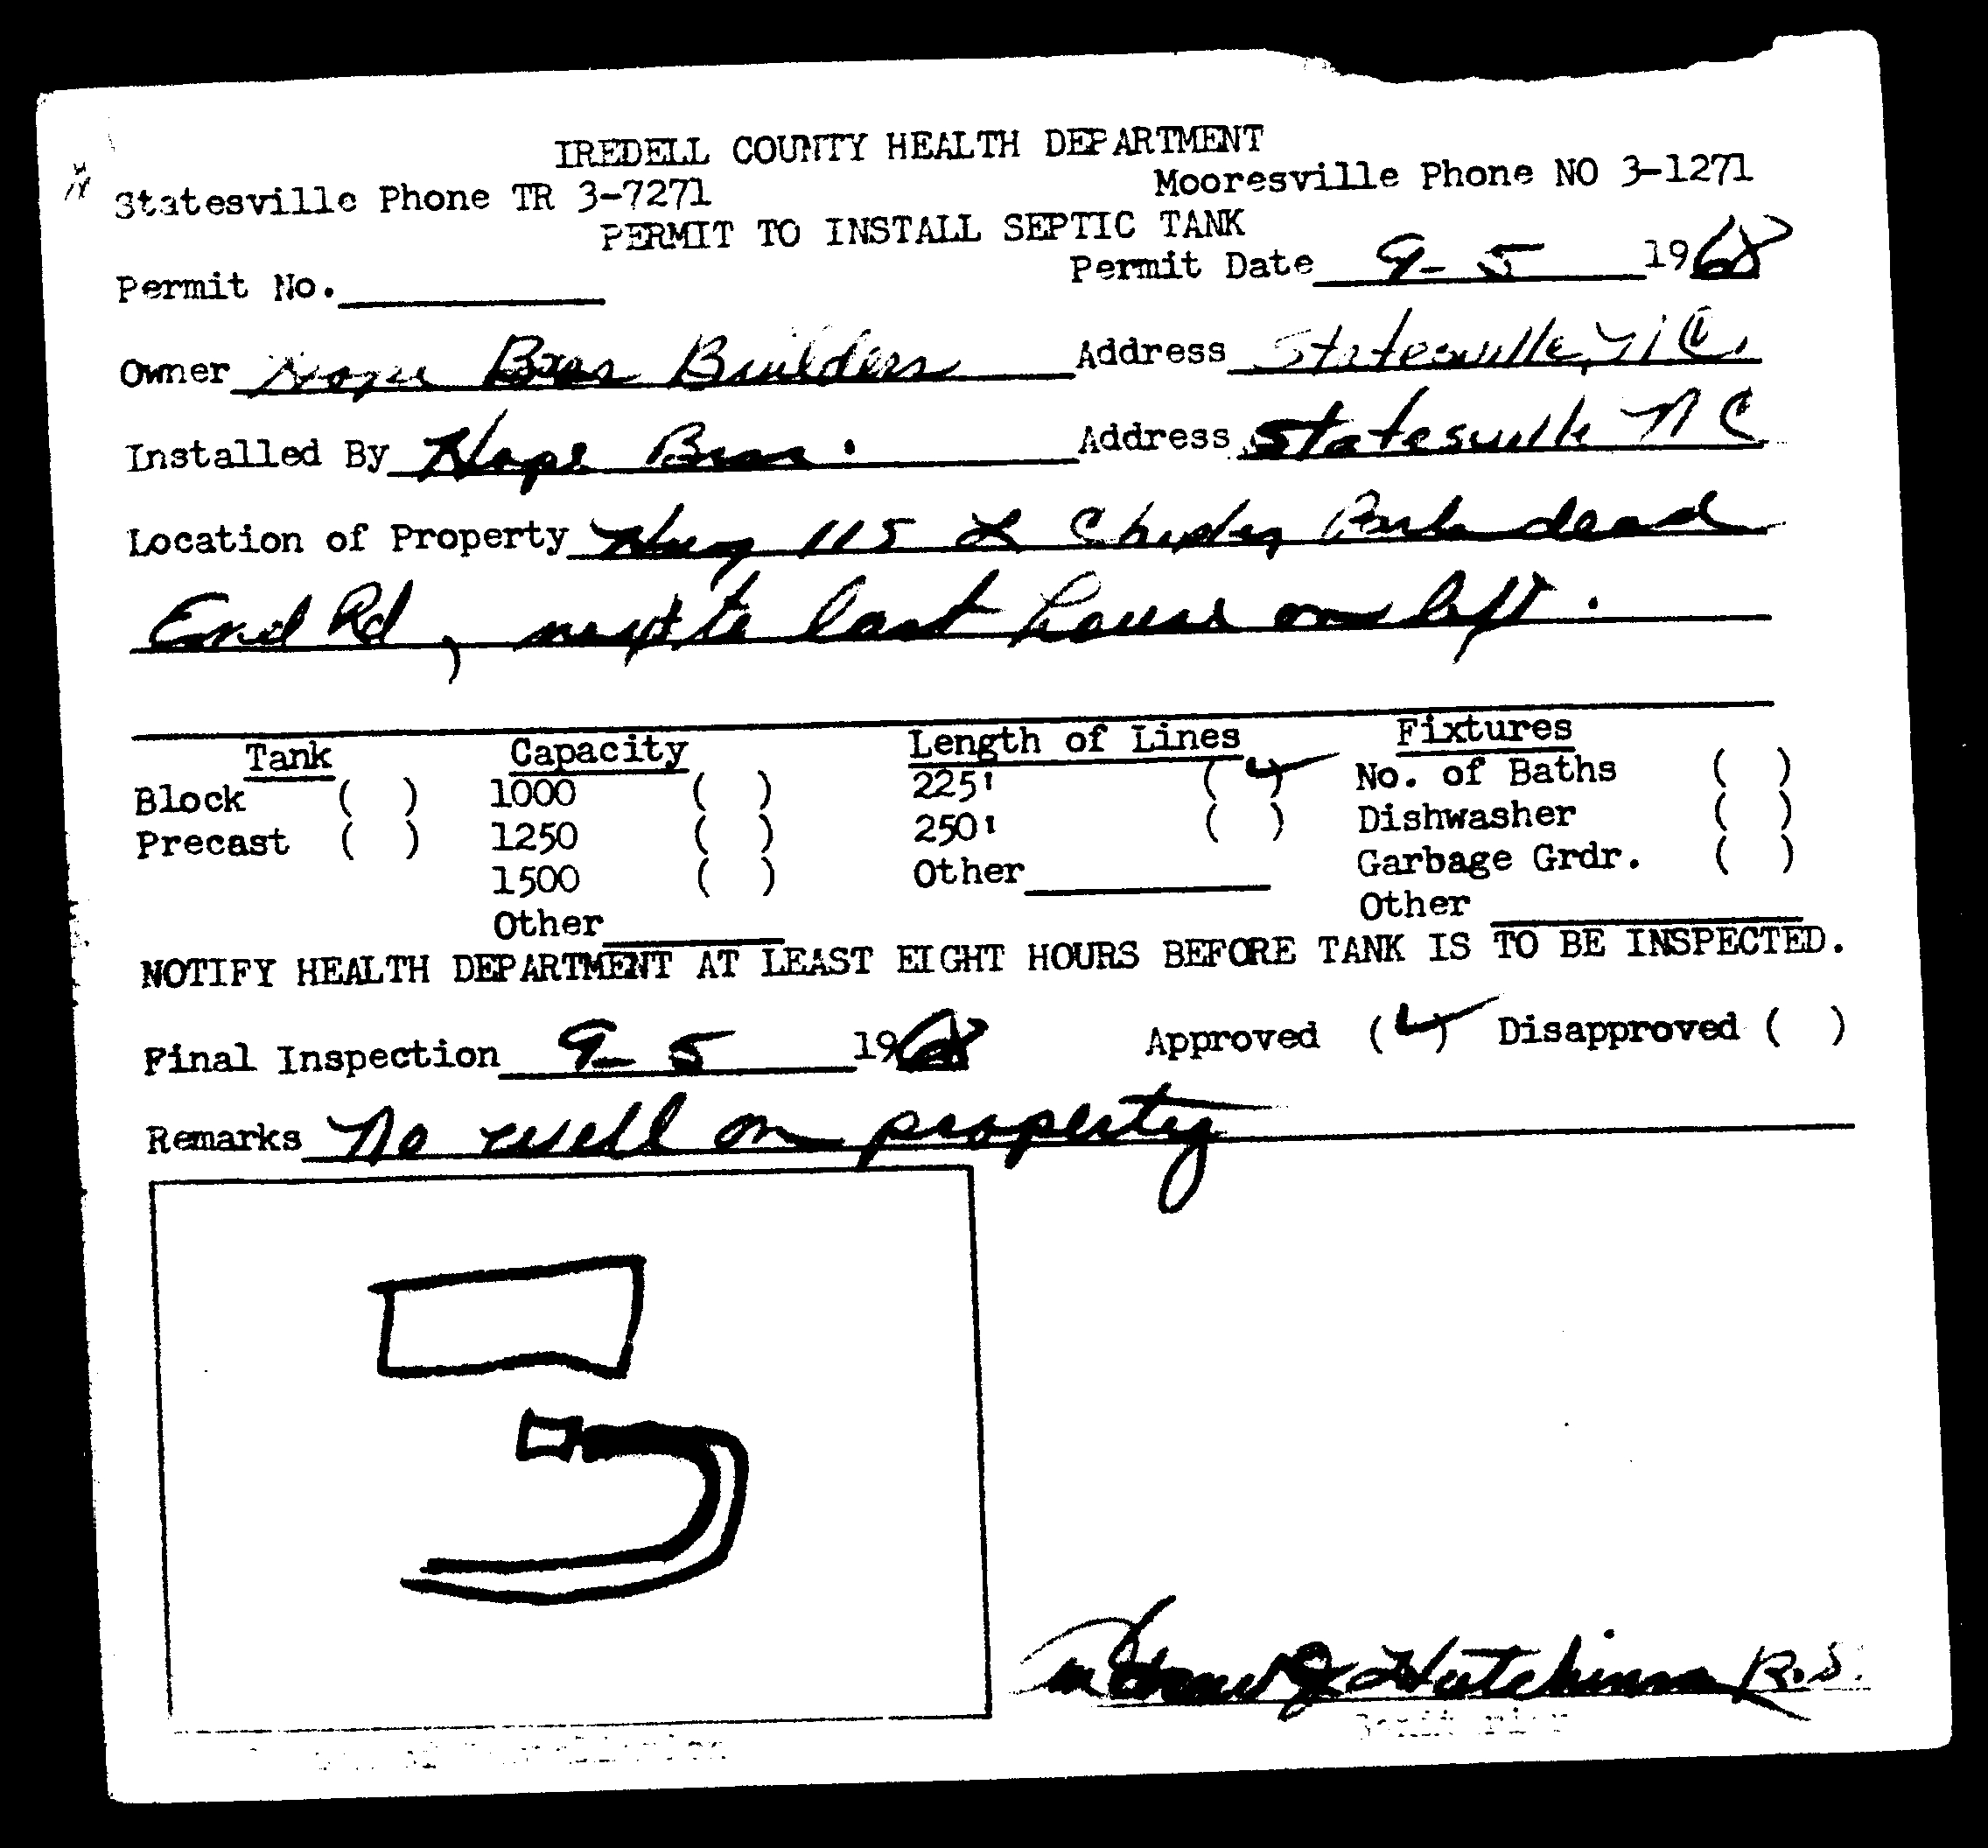 IREDELL COUNTY HEALTH DEPARTMENT
Statesville Phone TR 3-7271 Mooresville Phone NO 3-1271
PERMIT TO INSTALL SEPTIC TANK
Permit No. Permit Date 9-5 1968
Owner Bros Builders Address Statesville, N.C.
Installed By Bros. Address Statesville N C
Location of Property Hwy 115 L Park dead
End Rd, next to last house on left.
Tank Capacity Length of Lines Fixtures
Block ( ) 1000 ( ) 225' (✓) No. of Baths ( )
Precast ( ) 1250 ( ) 250' ( ) Dishwasher ( )
1500 ( ) Other Garbage Grdr. ( )
Other Other
NOTIFY HEALTH DEPARTMENT AT LEAST EIGHT HOURS BEFORE TANK IS TO BE INSPECTED.
Final Inspection 9-5 1968 Approved (✓) Disapproved ( )
Remarks No well on property
J Hutchinson R.S.
Sanitarian